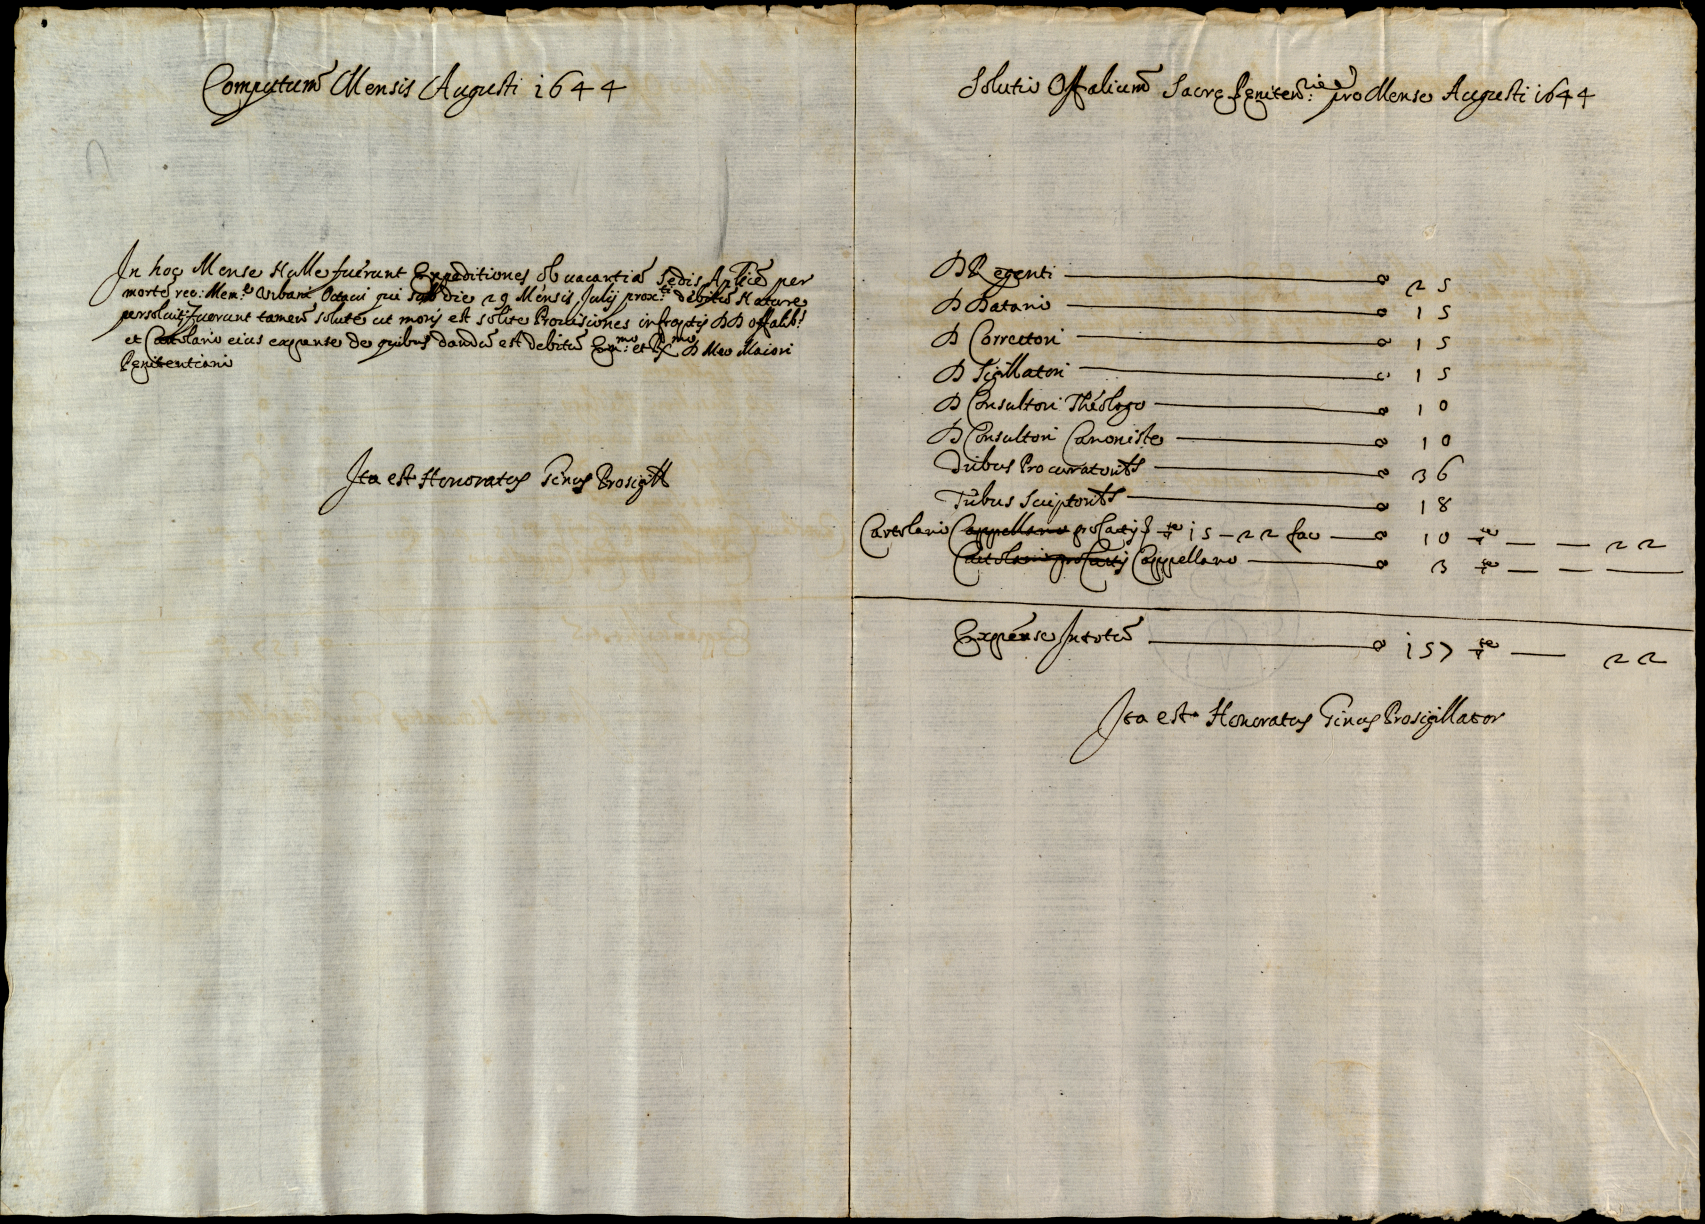 Computum Mensis Augusti 1644
In hoc Mense Nulle fuerunt Expeditiones ob vacantiã Sedis Aplicẽ per
mortẽ rec: Mem:e Urbani Octavi qui sub die 29 Mensis Julij prox:ti debitũ Nature
persoluit, fuerunt tamen solute ut moris est solite Provisiones infraptis DD offalib:
et Cartolario eius expense de quibus dandũ est debitũ Em:mo et R.mo D Meo Maiori
Penitentiario
Ita est Honoratus Ginus Prosigill
Solutio Offalium Sacre Peniten:rie pro Mense Augusti 1644
D Regenti 25
D Datario 15
D Correctori 15
D Sigillatori 15
D Consultori Theologo 10
D Consultori Canoniste 10
Tribus Procuratoribs 36
Tribus Sciptoribs 18
Cartolario Cappellano pro Cartis 15 – 22 fac 10 — — 22
Cartolario pro Cartis Cappellano 3 — — —
Expense In totũ 157 — 22
Ita est Honoratus Ginus Prosigillator